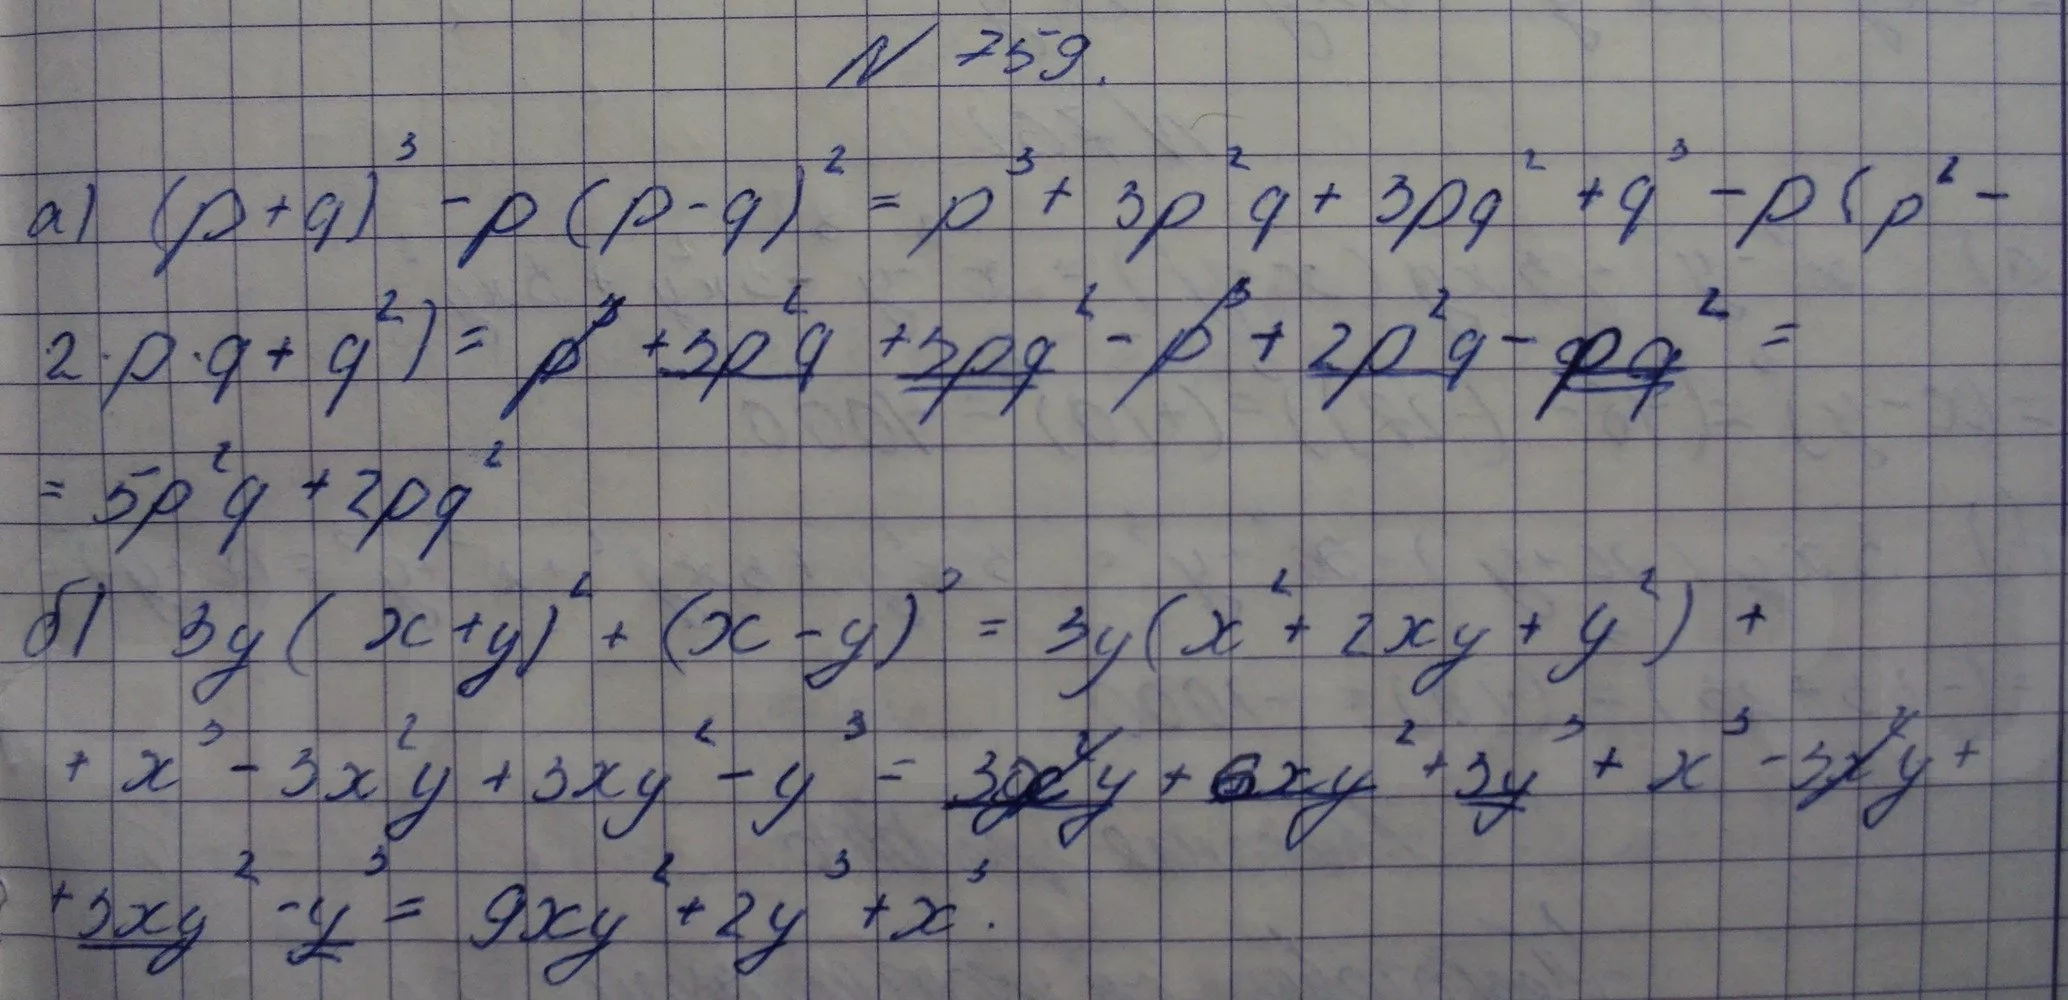 N 759.
а) (p+q)³ - p(p-q)² = p³ + 3p²q + 3pq² + q³ - p(p² -
2·p·q + q²) = p³ + 3p²q + 3pq² - p³ + 2p²q - pq² =
= 5p²q + 2pq²
б) 3y(x+y)² + (x-y)³ = 3y(x² + 2xy + y²) +
+ x³ - 3x²y + 3xy² - y³ = 3x²y + 6xy² + 3y³ + x³ - 3x²y +
+ 3xy² - y³ = 9xy² + 2y³ + x³.